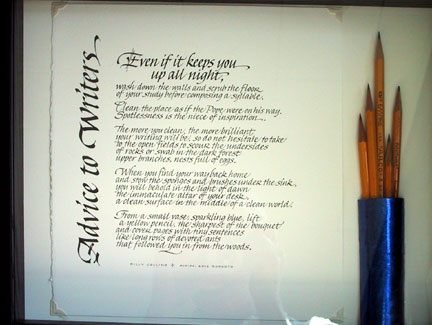 Advice to Writers
Even if it keeps you
up all night,
wash down the walls and scrub the floor
of your study before composing a syllable.
Clean the place as if the Pope were on his way.
Spotlessness is the niece of inspiration.
The more you clean, the more brilliant
your writing will be, so do not hesitate to take
to the open fields to scour the undersides
of rocks or swab in the dark forest
upper branches, nests full of eggs.
When you find your way back home
and stow the sponges and brushes under the sink,
you will behold in the light of dawn
the immaculate altar of your desk,
a clean surface in the middle of a clean world.
From a small vase, sparkling blue, lift
a yellow pencil, the sharpest of the bouquet
and cover pages with tiny sentences
like long rows of devoted ants
that followed you in from the woods.
BILLY COLLINS